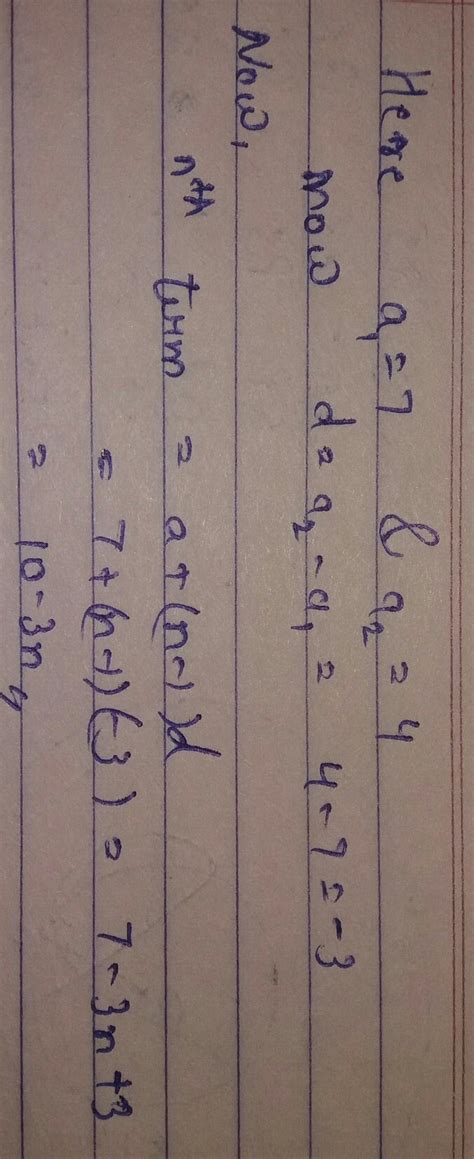 Here a₁ = 7 & a₂ = 4
now d = a₂ - a₁ = 4 - 7 = -3
Now,
nth term = a + (n-1)d
= 7 + (n-1)(-3) = 7 - 3n + 3
= 10 - 3n